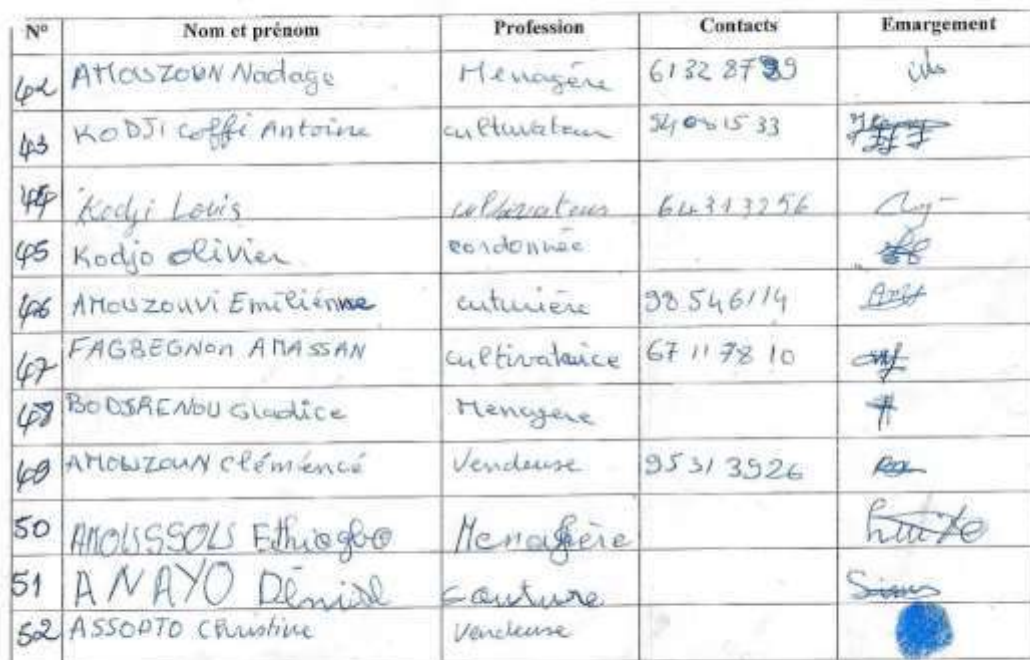 N° Nom et prénom Profession Contacts Emargement
42 AMOUZOUN Nadage Menagère 61328799
43 KODJI Coffi Antoine cultivateur 94001533
44 Kodji Louis cultivateur 64313256
45 Kodjo olivier cordonnée
46 AMOUZOUVI Emiliénne cuturière 98546114
47 FAGBEGNON AMASSAN cultivatrice 67117810
48 BODJRENOU Gladice Menagère
49 AMOUZOUN Clémencé Vendeuse 95313926
50 AMOUSSOU Ethiogbo Menagère
51 ANAYO Dénise couture
52 ASSOPTO Christine Vendeuse